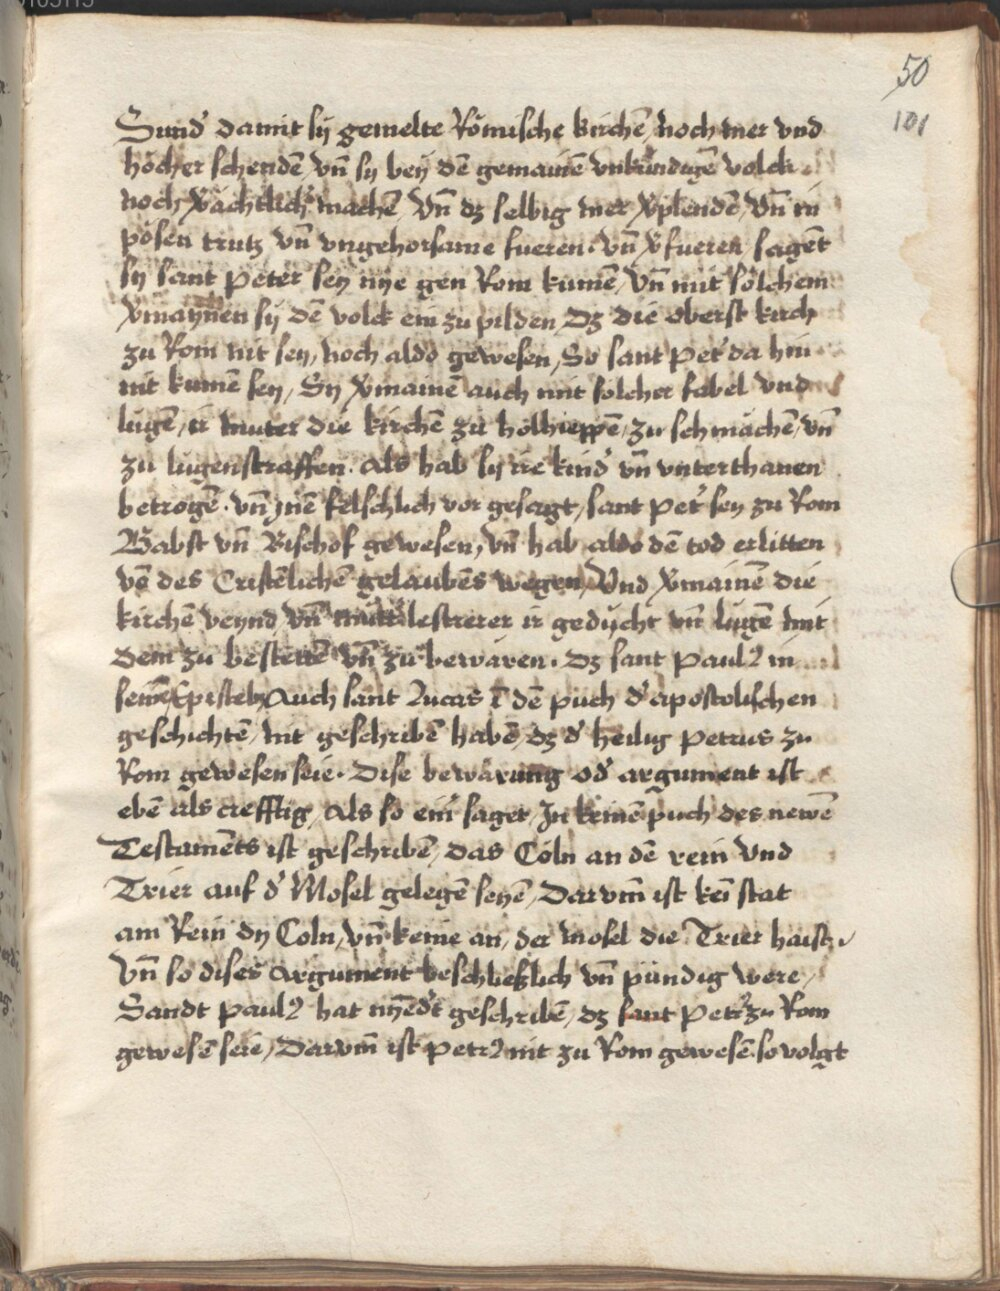 50
101
Sund̛ damit sÿ gemelte Römische kirchē, noch mer vnd
höcher schendē, vn̄ sy beÿ dē gemainē vnkündigē volck
noch v̛ächtlich machē, Vn̄ dz selbig mer v̛plendē, Vn̄ in
pösen trutz vn̄ vngehorsame fueren. vn̄ v̛fueren, sagēt
sÿ sant Peter seÿ nÿe gen Rom kumē, Vn̄ mit sölchem
v̛maÿnen sÿ dē volck ein zu pilden, Dz die oberst kirch
zu Rom nit sey, noch aldo gewesen, So sant Pet̛ da hin
nit kumē sey, Sy v̛mainē auch mit solcher fabel vnd
lugē, ir muter die kirchē zu holhieppē, zu schmächē, vn̄
zu lugenstraffen. Als hab sÿ ire kind̛ vn̄ vnterthanen
betrogē. vn̄ jnē felschlich vor gesagt, sant Pet̛ sey zu Rom
Babst vn̄ Bischof gewesen, vn̄ hab aldo dē tod erlitten
vō des Cristēlichē gelaubēs wegen, Vnd v̛mainē die
kirchē veynd, vn̄ mutt̛ lestrerer ir gedÿcht vn̄ lugē mit
dem zu bestettē vn̄ zu bewären. Dz sant Paulꝰ in
seinē Epistelnn, Auch sant Lucas ī dē puch d̛ apostolischen
geschichtē, nit geschribē habē, dz d̛ heilig Petrus zu
Rom gewesen seie. Dise bewärung od̛ argument ist
ebē als crefftig, Als so ein̛ saget, In keinē puch des newē
Testamēts ist geschribē, das Cöln an dē rein vnd
Trier auf d̛ Mosel gelegē seyē, Darvm̄ ist kei stat
am Rein dy Coln, vn̄ keine an, der mosel die Trier haist.
Vn̄ so dises Argument beschließlich vn̄ pündig were,
Sandt Paulꝰ hat nyēd̛t geschribē, dz sant Pet̛ zu Rom
gewesē seie, Darvm̄ ist Petrꝰ nit zu Rom gewesē. so volgt